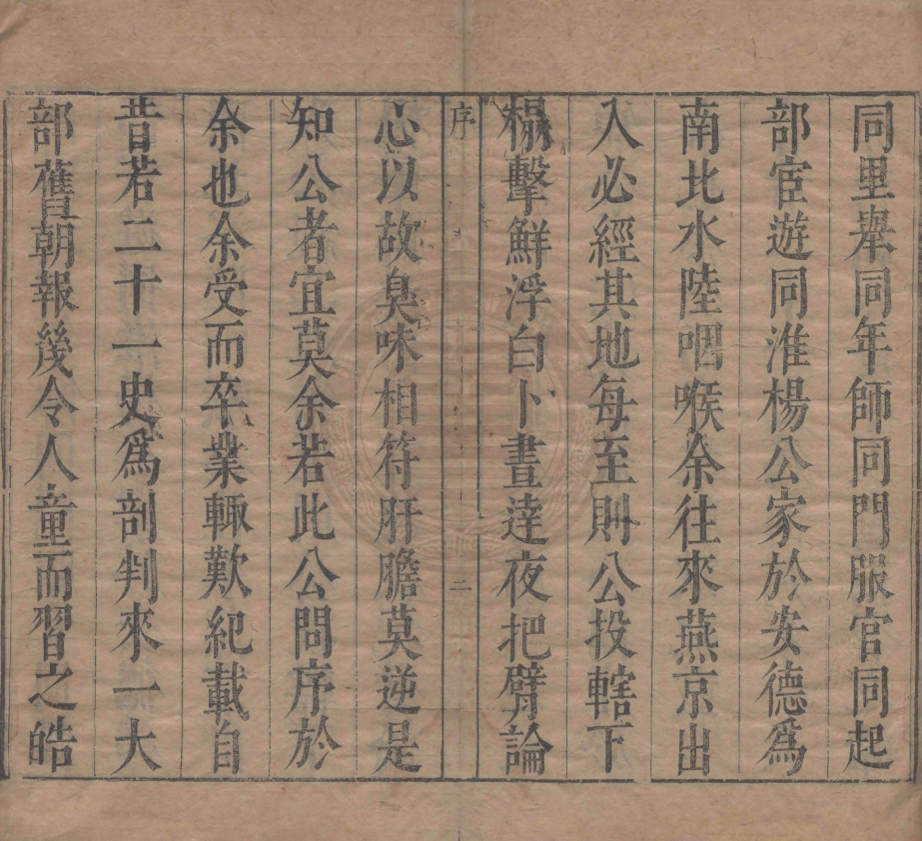 同里舉同年師同門服官同起
部宦遊同淮楊公家於安德爲
南北水陸咽喉余往來燕京出
入必經其地每至則公投轄下
榻擊鮮浮白卜晝達夜把臂論
序 二
心以故臭味相符肝膽莫逆是
知公者宜莫余若此公問序於
余也余受而卒業輒歎紀載自
昔若二十一史爲剖判來一大
部舊朝報幾令人童而習之皓